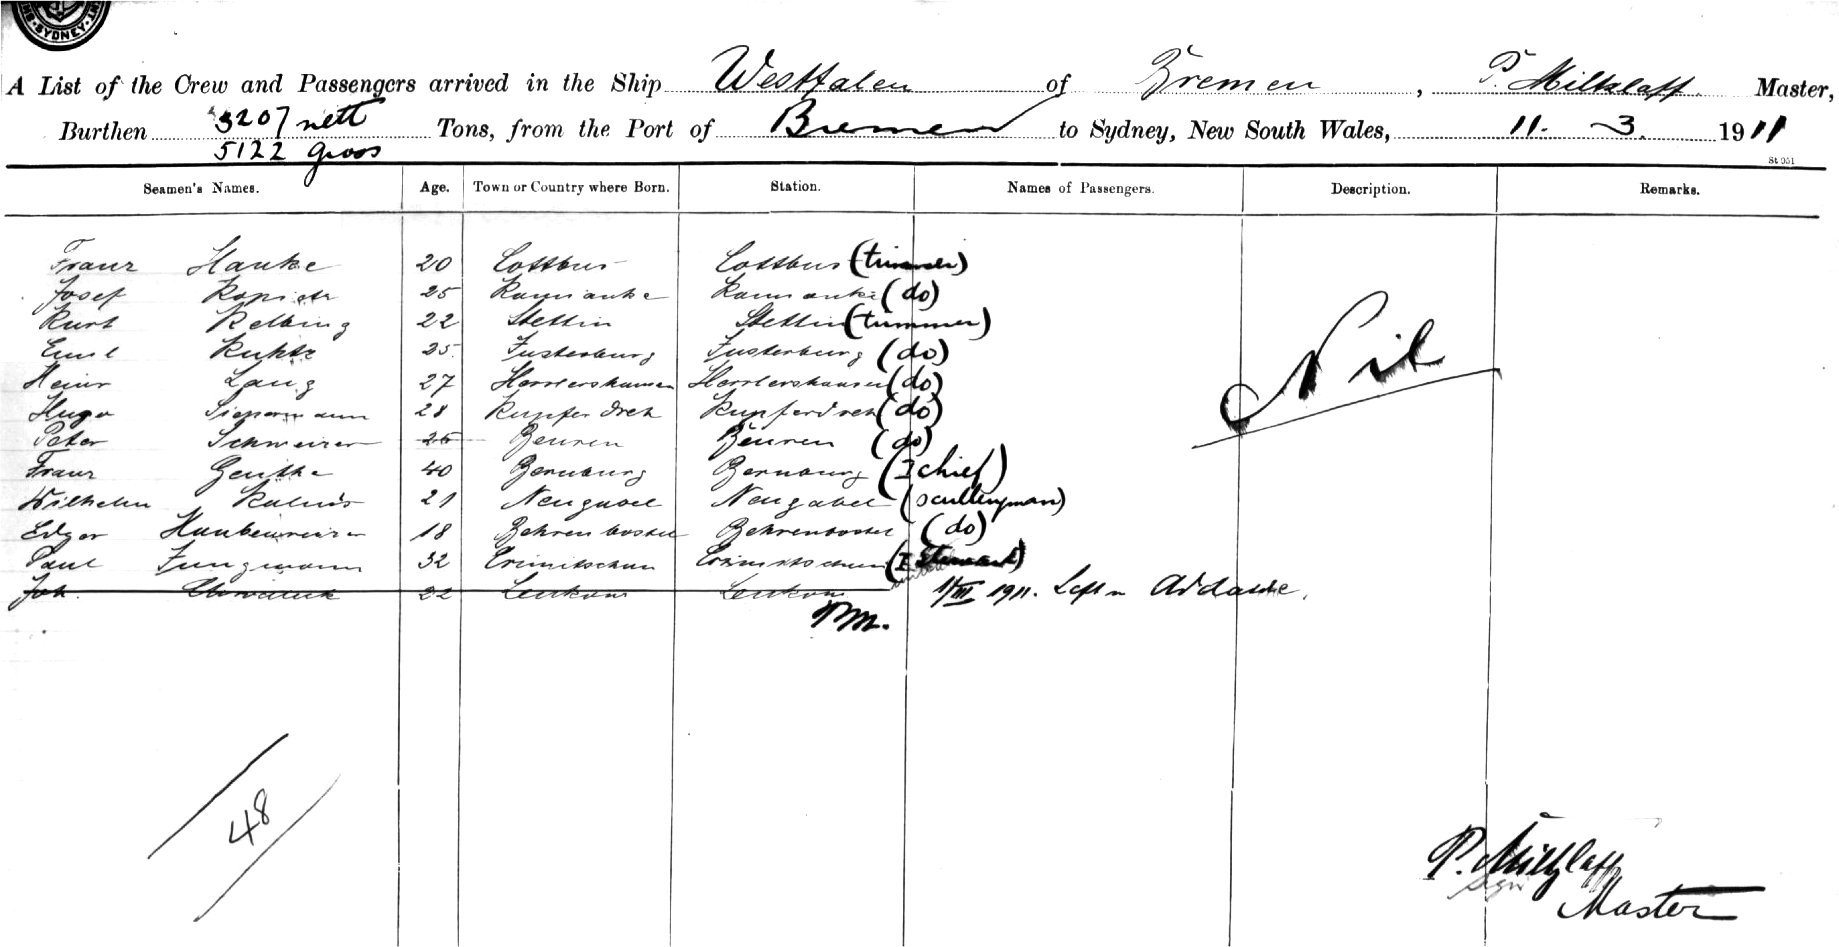 SYDNEY
A List of the Crew and Passengers arrived in the Ship Westfalen of Bremen, P. Miltzlaff Master,
Burthen 3207 nett Tons, from the Port of Bremen to Sydney, New South Wales, 11. 3. 1911
5122 gross
St 951
Seamen's Names. Age. Town or Country where Born. Station. Names of Passengers. Description. Remarks.
Franz Hanke 20 Cottbus Cottbus (trimmer)
Josef 25 (do)
Kurt Relbing 22 Stettin Stettin (trimmer)
Emil 25 Insterburg Insterburg (do)
Heinr Lang 27 (do)
Hugo 28 Kupferdreh Kupferdreh (do)
Peter Schweizer 26 Beuren Beuren (do)
Franz Genthe 40 Bernburg Bernburg (I chief)
Wilhelm 21 Neugabel Neugabel (sculleryman)
Edgar 18 Behrenbostel Behrenbostel (do)
Paul Jungmann 32 Crimitschau Crimitschau (I Steward)
Joh. 22 Lenkow Lenkow 11/III 1911. Left in Adelaide.
PM.
Nil
48
P. Miltzlaff
Master